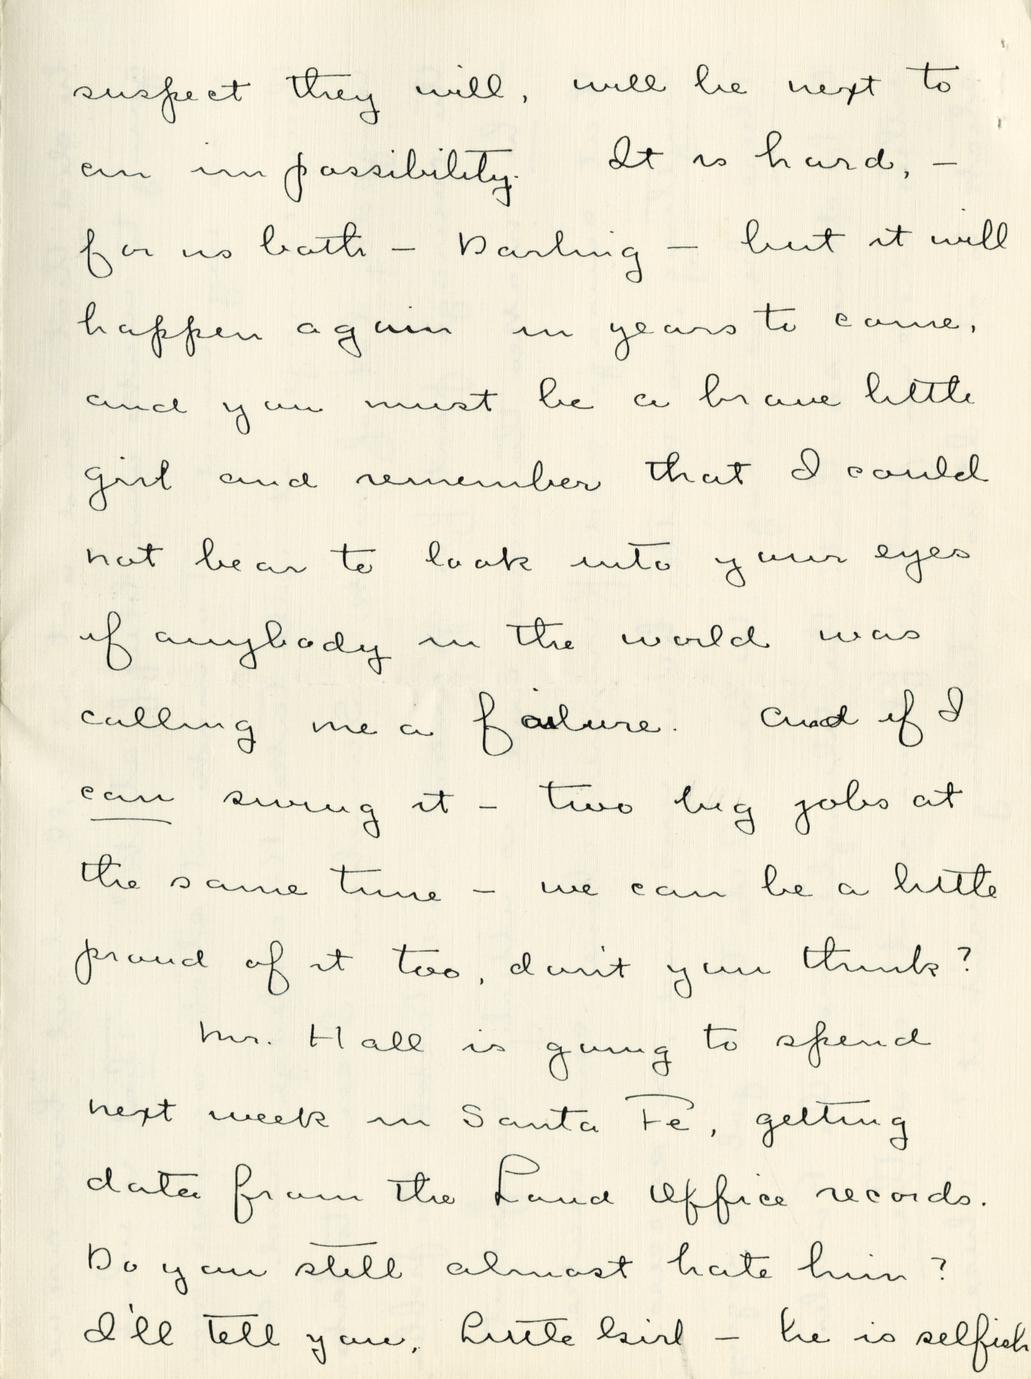 suspect they will, will be next to
an impossibility. It is hard, -
for us both - Darling - but it will
happen again in years to come,
and you must be a brave little
girl and remember that I could
not bear to look into your eyes
if anybody in the world was
calling me a failure. And if I
can swing it - two big jobs at
the same time - we can be a little
proud of it too, don't you think?
Mr. Hall is going to spend
next week in Santa Fe, getting
data from the Land Office records.
Do you still almost hate him?
I'll tell you, Little Girl - he is selfish